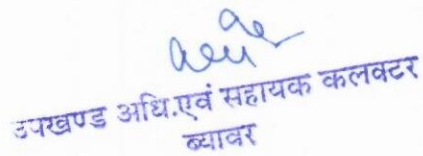 उपखण्ड अधि.एवं सहायक कलक्टर
ब्यावर